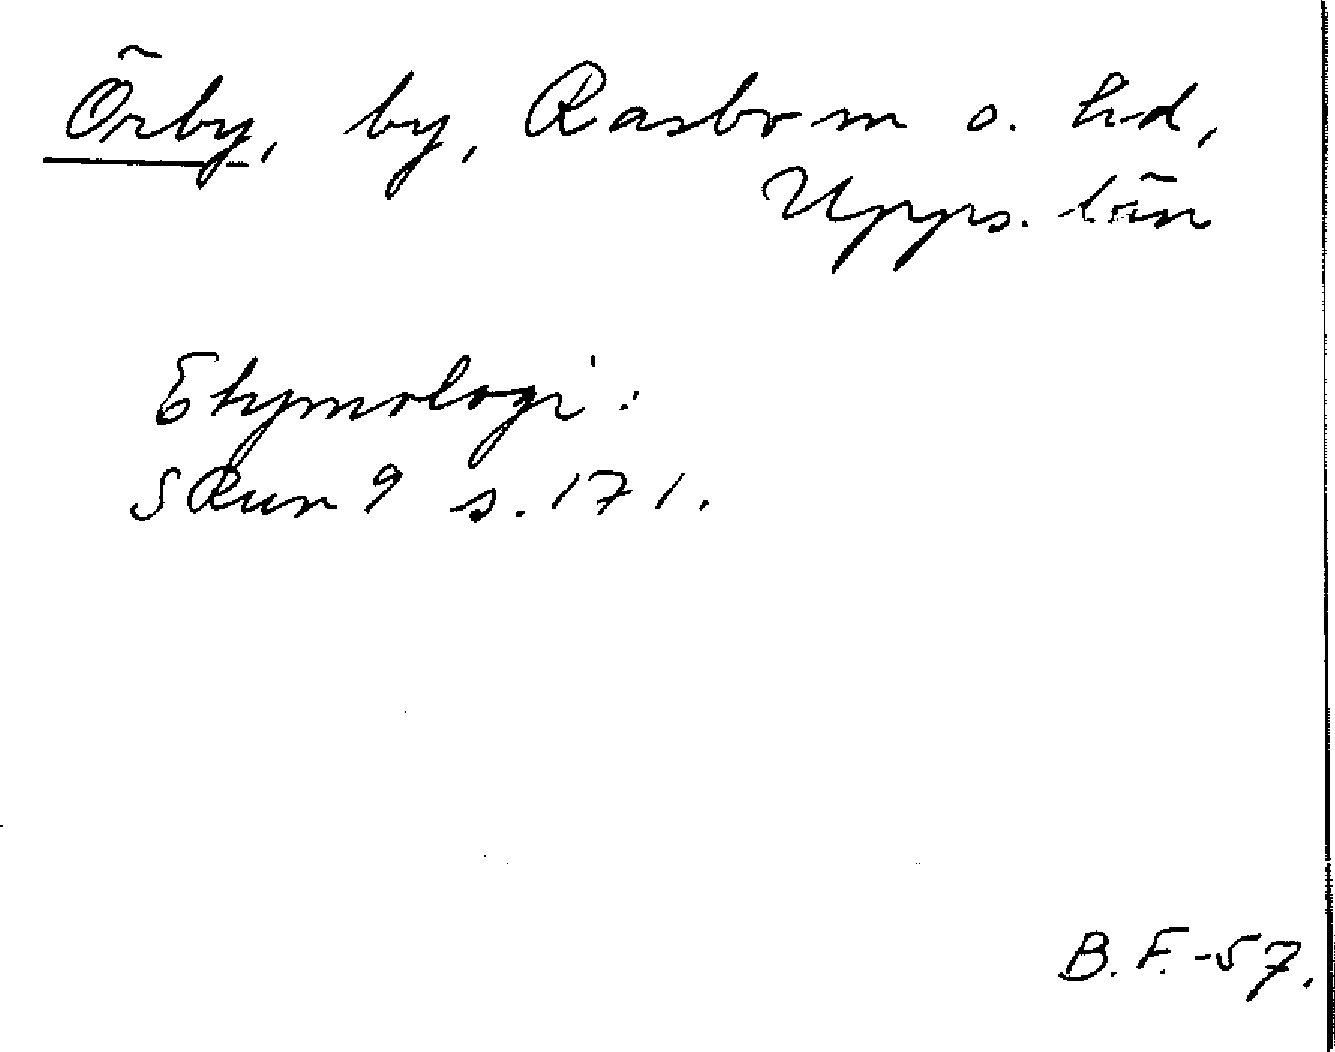 Örby, by, Rasbo sn o. hd,
Upps. län
Etymologi:
SRun 9 s. 171.
B. F. -57.